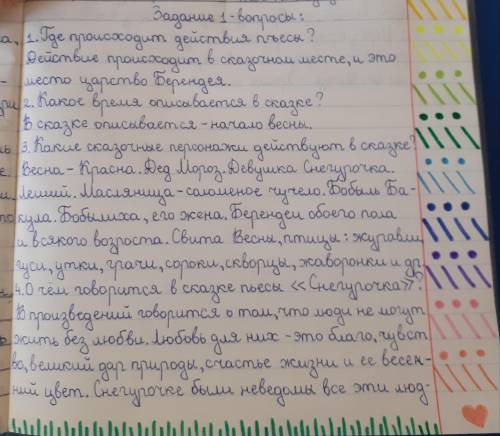 Задание 1-вопросы:
1. Где происходит действия пъесы?
Действие происходит в сказочном месте, и это
место царство Берендея.
2. Какое время описывается в сказке?
В сказке описывается - начало весны.
3. Какие сказочные персонажи действуют в сказке?
Весна - Красна. Дед Мороз. Девушка Снегурочка.
Леший. Масляница - саломеное чучело. Бобыль Ба-
кула. Бобылиха, его жена. Берендеи обоего пола
и всякого возроста. Свита Весны, птицы: журавли,
гуси, утки, грачи, сороки, скворцы, жаворонки и др.
4. О чём говорится в сказке пьесы «Снегурочка»?
В произведений говорится о том, что люди не могут
жить без любви. Любовь для них - это благо, чувст-
во, великий дар природы, счастье жизни и ее весен-
ний цвет. Снегурочке были неведомы все эти люд-